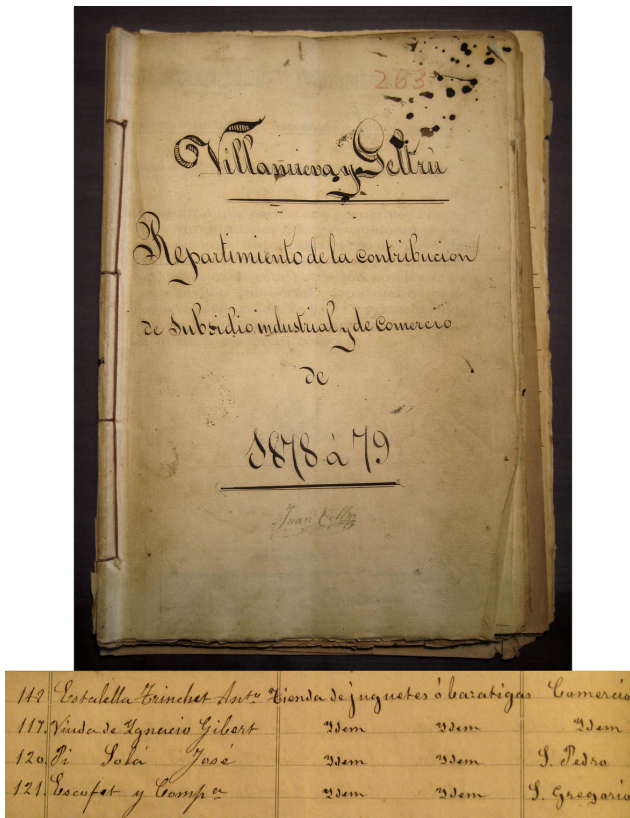 263
Villanueva y Geltrú
Repartimiento de la contribucion
de Subsidio industrial y de comercio
de
1878 á 79
Juan
112 Estalella Trinchet Antº Tienda de juguetes ó baratigas Comercio
117. Viuda de Ygnacio Gibert Ydem Ydem Ydem
120. Pi Solá José Ydem Ydem S. Pedro
121. Escofet y Compª Ydem Ydem S. Gregorio